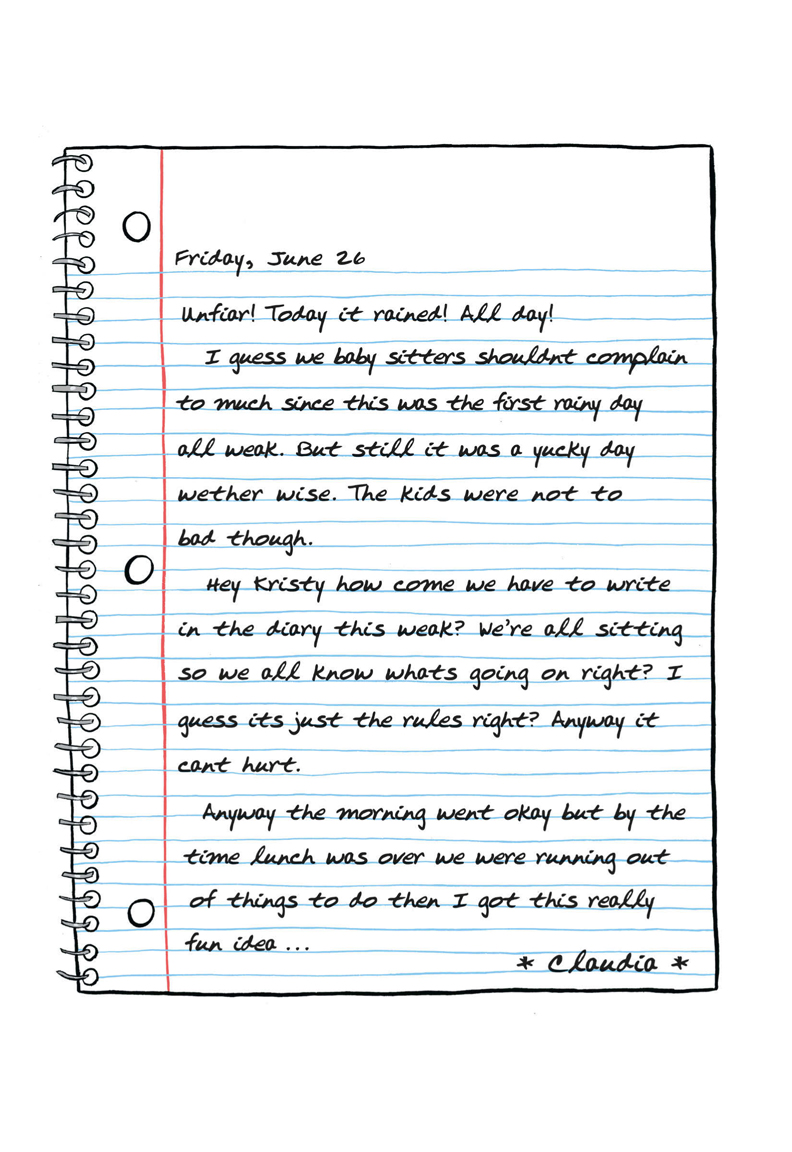 Friday, June 26
Unfiar! Today it rained! All day!
I guess we baby sitters shouldnt complain
to much since this was the first rainy day
all weak. But still it was a yucky day
wether wise. The kids were not to
bad though.
Hey Kristy how come we have to write
in the diary this weak? We're all sitting
so we all know whats going on right? I
guess its just the rules right? Anyway it
cant hurt.
Anyway the morning went okay but by the
time lunch was over we were running out
of things to do then I got this really
fun idea ...
* Claudia *